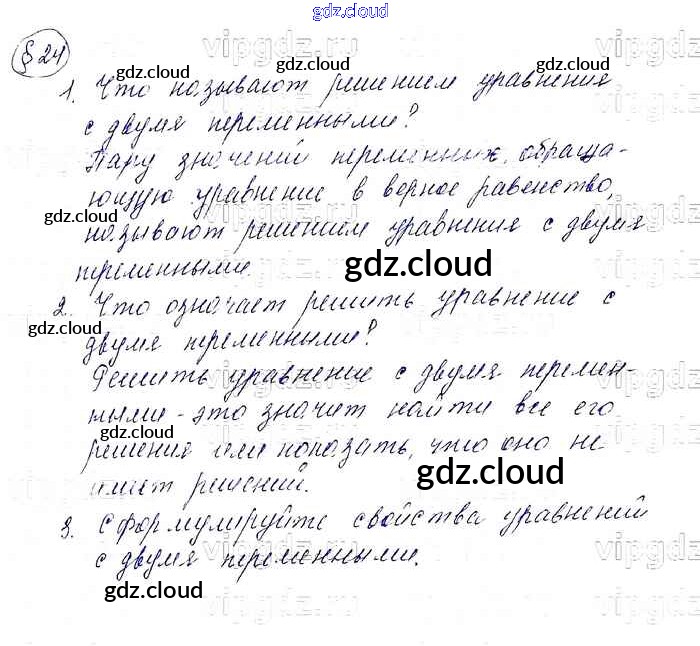 gdz.cloud
§ 24
1. Что называют решением уравнения
с двумя переменными?
Пару значений переменных, обраща-
ющую уравнение в верное равенство,
называют решением уравнения с двумя
переменными.
2. Что означает решить уравнение с
двумя переменными?
Решить уравнение с двумя перемен-
ными - это значит найти все его
решения или показать, что оно не
имеет решений.
3. Сформулируйте свойства уравнений
с двумя переменными.